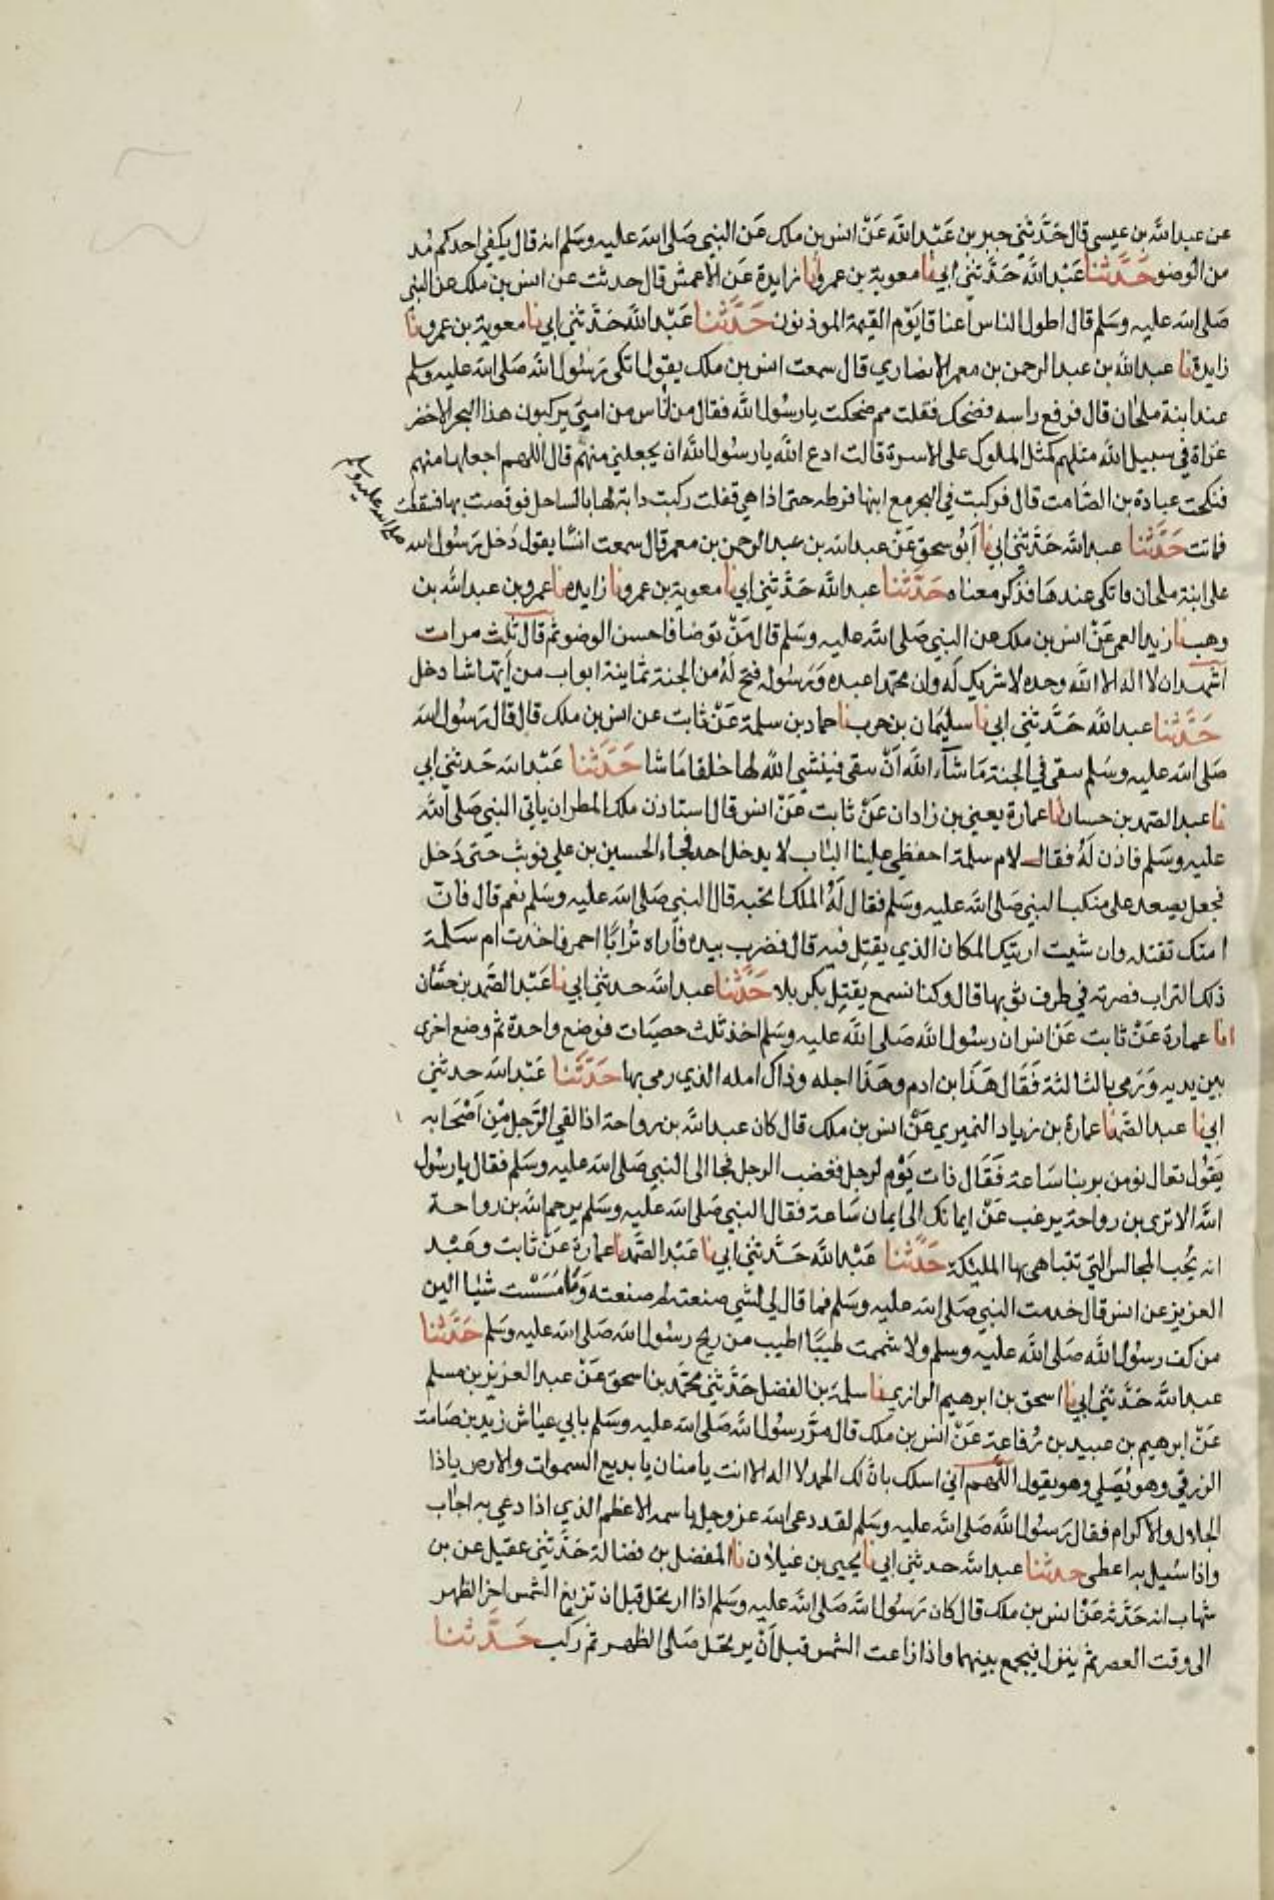 عن عبد الله بن عيسى قال حَدَّثني جبر بن عَبْد الله عَنْ انس بن ملك عَن النبي صَلى الله عليه وسَلم انه قال يكفي احدكم مُد
من الوضو حَدَّثنا عَبْد الله حَدَّثني ابي نا معوية بن عمرو نا زايدة عَن الاعمش قال حدثت عن انس بن ملك عن النبي
صَلى الله عليه وسَلم قال اطول الناس اعناقا يَوْم القيمة الموذنون حَدَّثنا عَبْد الله حَدثني ابي نا معوية بن عمرو نا
زايدة نا عبد الله بن عبد الرحمن بن معمر الانصاري قال سمعت انس بن ملك يقول اتكى رَسُول الله صَلى الله عليه وسلم
عند ابنة ملحان قال فرفع راسه فضحك فقلت مم ضحكت يا رسُول الله فقال من اناس من امتي يركبون هذا البحر الاخضر
غزاة في سبيل الله مثلهم كمثل الملوك على الاسرة قالت ادع الله يا رسُول الله ان يجعلني منهم قال اللهم اجعلها منهم
فنكحت عبادة بن الصَامت قال فركبت في البحر مع ابنها قرظه حتى اذا هي قفلت ركبت دابة لها بالساحل فوقصت بها فسقطت
فماتت حَدَّثنا عبد الله حَدَّثني ابي نا اَبُو سحق عَنْ عبد الله بن عبد الرحمن بن معمر قال سمعت انسًا يقول دَخل رَسُول الله
صلى الله عليه وسلم
على ابنة ملحان فاتكى عندهَا فذكر معناه حَدَّثنا عبد الله حَدَّثني ابي نا معوية بن عمرو نا زايده نا عمرو بن عبد الله بن
وهب نا زيد العمى عَنْ انس بن ملك عن النبي صَلى الله عليه وسَلم قال مَنْ توضا فاحسن الوضو ثم قال ثلث مرات
اشهد ان لا اله الا الله وحده لا شريك لَه وان محمدا عبده وَرَسُوله فتح لَهُ من الجنة ثمانية ابواب من ايّها شا دخل
حَدَّثنا عبد الله حَدَّثني ابي نا سليمَان بن حرب نا حماد بن سلمة عَنْ ثابت عن انس بن ملك قال قال رَسُول الله
صَلى الله عليه وسَلم يبقى في الجنة مَا شآء الله اَنْ يبقى فينشي الله لها خلقا مَا شا حَدَّثنا عَبْد الله حَدثني ابي
نا عبد الصَمد بن حسان انا عمارة يعني بن زاذان عَنْ ثابت عَنْ انس قال استاذن ملك المطر ان ياتي النبي صَلى الله
عليه وسَلم فاذن لَهُ فقال لام سلمة احفظي علينا البَاب لا يدخل احد فجاء الحسين بن علي فوثب حتى دَخل
فجعل يصعد على منكب النبي صَلى الله عليه وسَلم فقال لَهُ الملك اتحبه قال النبي صَلى الله عليه وسَلم نعم قال فان
امتك تقتله وان شيت اريتك المكان الذي يقتل فيه قال فضرب بيده فاراه تُرابًا احمر فاخذت ام سَلمة
ذلك التراب فصرته في طرف ثوبها قال وكنا نسمع يقتل بكربلا حَدَّثنا عبد الله حدثني ابي نا عَبْد الصَّمد بن حسَّان
انا عمارة عَنْ ثابت عَنْ انس ان رسُول الله صَلى الله عليه وسَلم اخذ ثلث حصيَات فوضع واحدة ثم وضع اخرى
بين يديه وَرَمى بالثالثة فَقَال هَذا بن ادم وهَذا اجله وذاك امله الذي رمى بها حَدَّثَنا عَبْد الله حدثني
ابي نا عبد الصَّمد نا عمارة بن زياد النميري عَنْ انس بن ملك قال كان عبد الله بن رواحة اذا لقي الرَّجل مِن اَصْحابه
يَقُول تعال نومن بربنا سَاعة فَقَال ذات يَوْم لرجل فغضب الرجل فجا الى النبي صَلى الله عليه وسَلم فقال يا رسُول
الله الا ترى بن رواحة يرغب عَنْ ايمانك الى ايمان سَاعة فقال النبي صَلى الله عليه وسَلم يرحم الله بن رواحة
انه يُحب المجالس التي تتباهى بها المليكة حَدَّثنا عَبْد الله حَدَّثني ابي نا عَبْد الصَّمد نا عمارة عَنْ ثابت وعَبْد
العزيز عن انس قال خدمت النبي صَلى الله عليه وسَلم فما قال لي لشي صنعته لم صنعته وَمَا مَسَسْت شيا الين
من كف رسُول الله صَلى الله عليه وسلم ولا شممت طيبًا اطيب من ريح رسُول الله صَلى الله عليه وسَلم حَدَّثنا
عبد الله حَدَّثني ابي نا اسحق بن ابرهيم الرازي نا سلمة بن الفضل حَدَّثني محَمد بن اسحق عَنْ عبد العزيز بن مسلم
عَنْ ابرهيم بن عبيد بن رُفاعة عَنْ انس بن ملك قال مَرَّ رسُول الله صَلى الله عليه وسَلم بابي عيّاش زيد بن صَامت
الزرقي وهو يُصَلي وهو يقول اللّهم اني اسلك بانَّ لك الحمد لا اله الا انت يا منان يا بديع السموات والارض يا ذا
الجلال والاكرام فقال رَسُول الله صَلى الله عليه وسَلم لقد دعى الله عز وجل باسمه الاعظم الذي اذا دعي به اجاب
واذا سُيل به اعطى حدثنا عبد الله حدثني ابي نا يحيى بن غيلان نا المفضل بن فضالة حَدَّثني عقيل عن بن
شهاب انه حَدَّثه عَنْ انس بن ملك قال كان رَسُول الله صَلى الله عليه وسَلم اذا ارتحل قبل ان تزيغ الشمس اخر الظهر
الى وقت العصر ثم ينزل فيجمع بينهما واذا زاغت الشمس قبل اَنْ يرتحَل صَلى الظهر ثم ركب حَدَّثنا